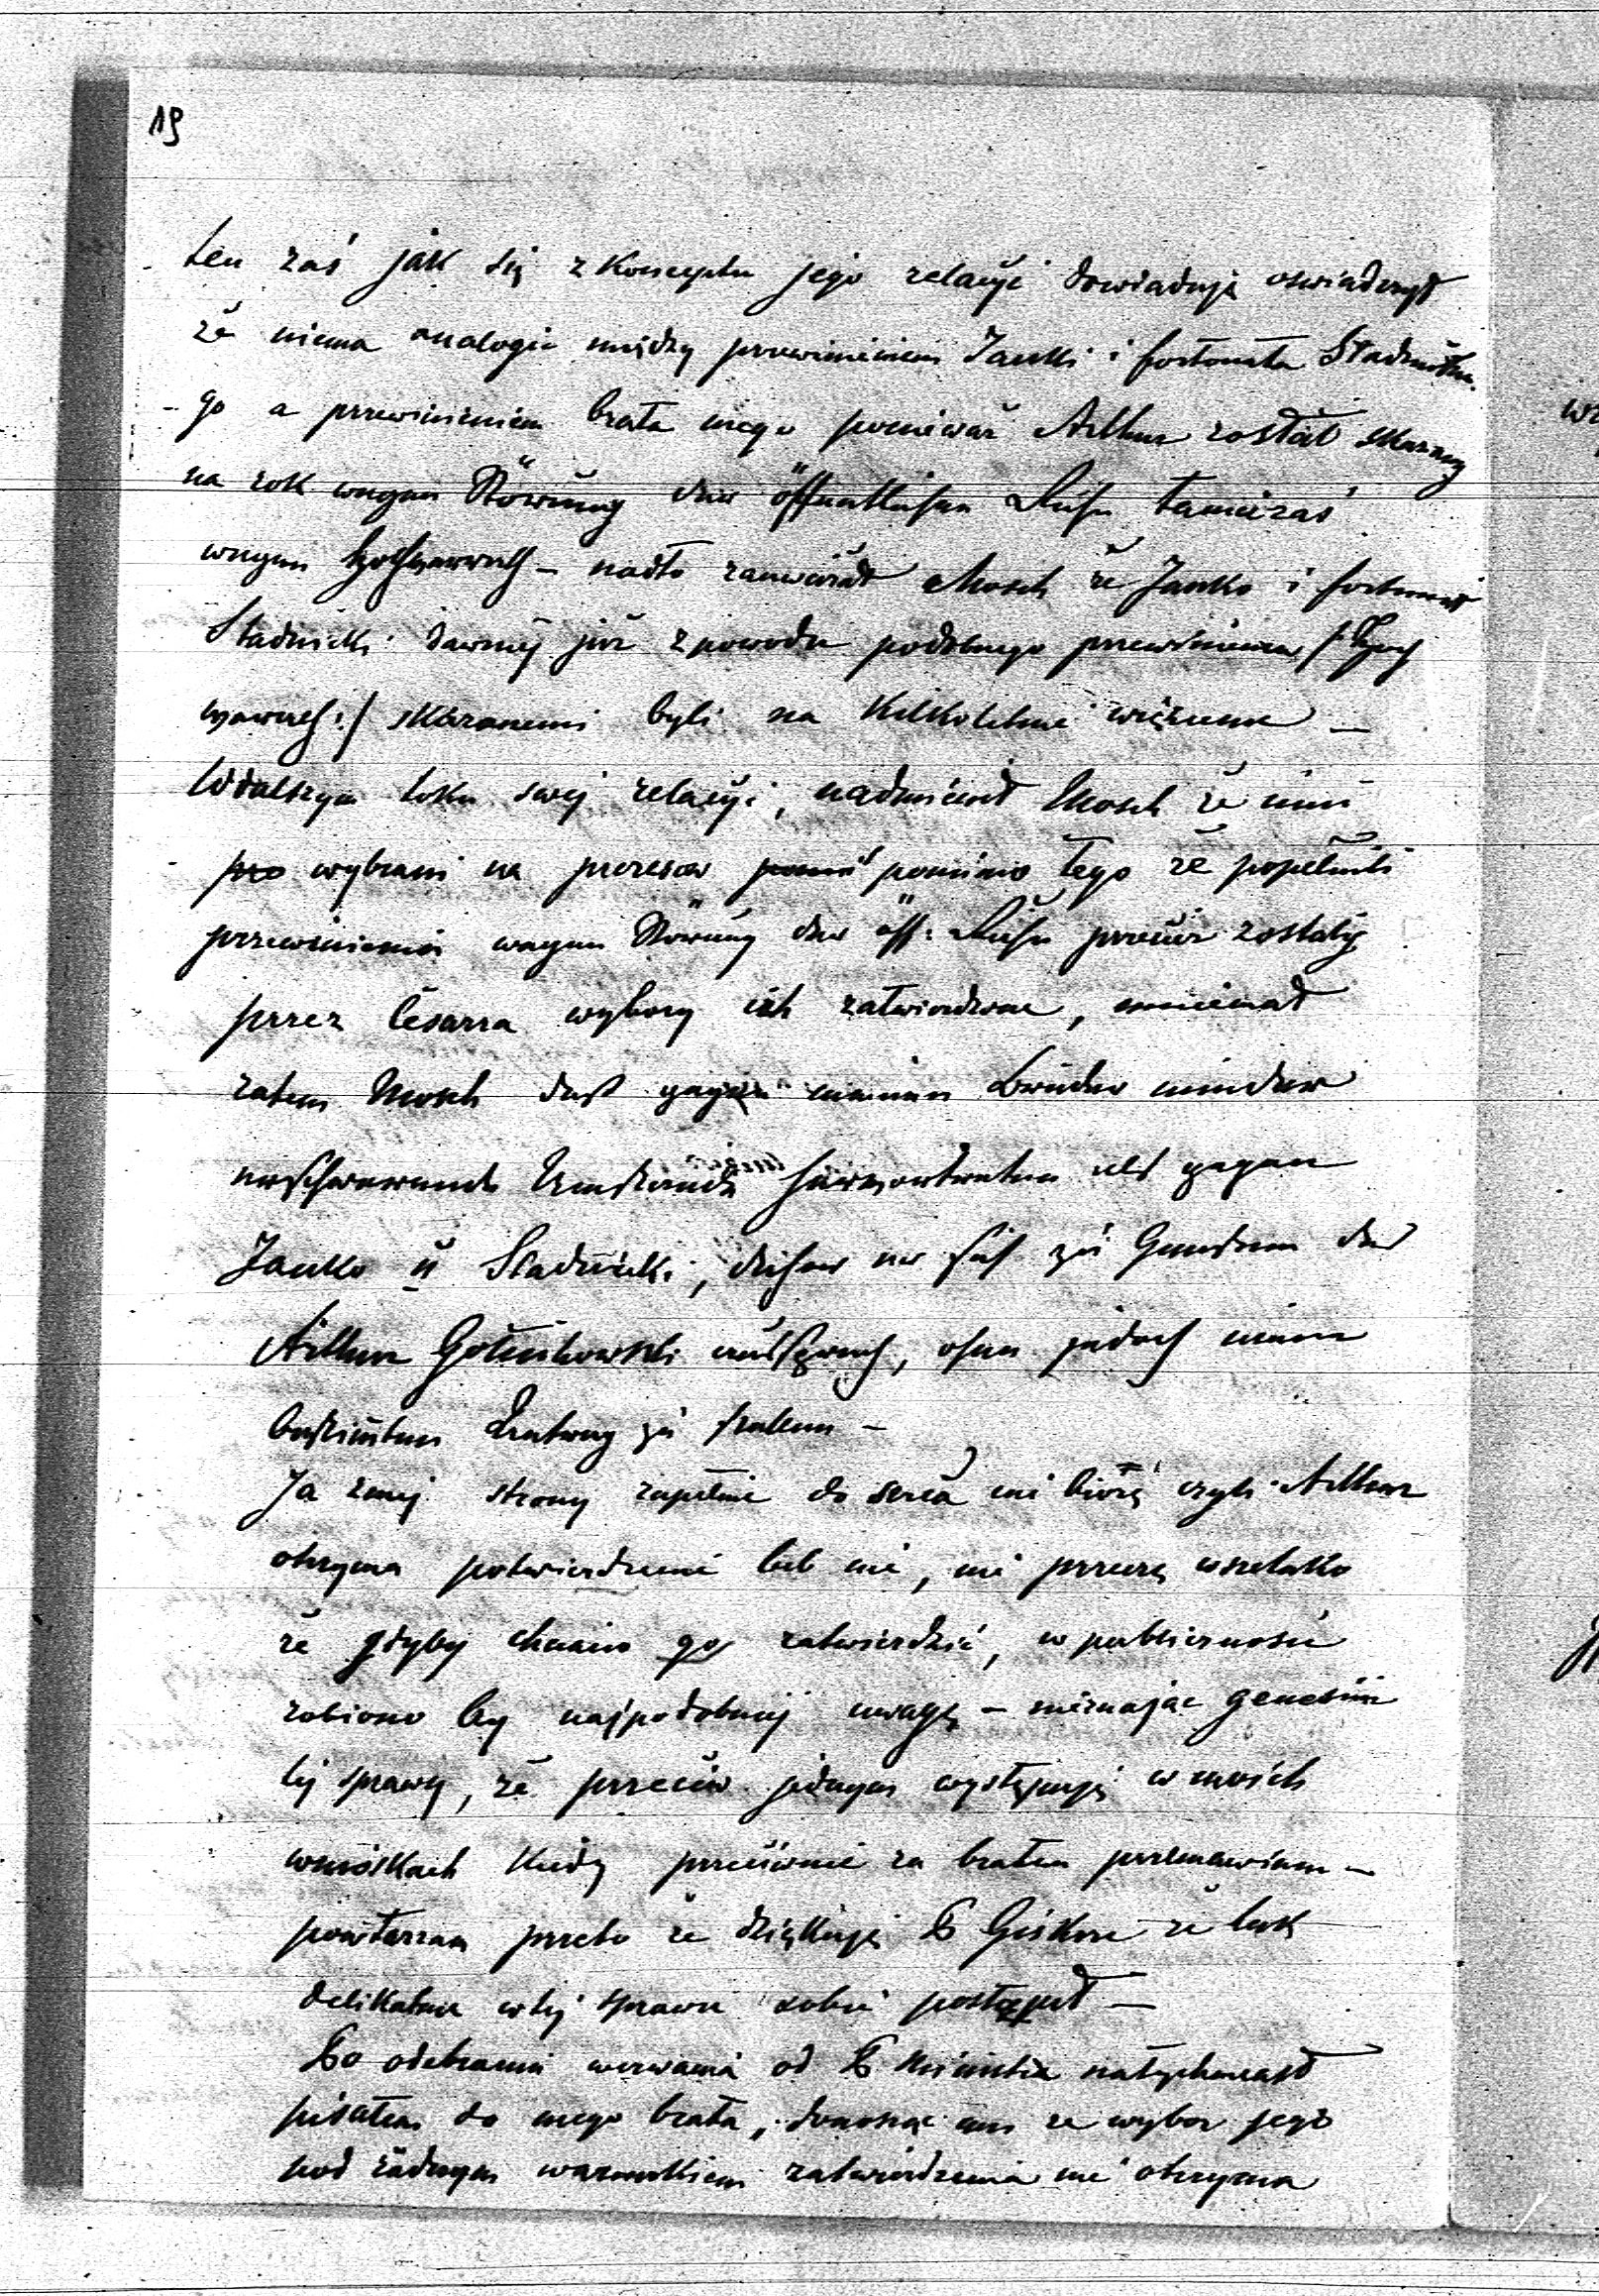 19
ten zaś jak się z konceptu jego relacyi dowiaduję oswiadczył
że niema analogii między przewinieniem Janki i fortunata Stadnickie
go a przewinieniem brata mego ponieważ Arthur został skazany
na rok wegen Störung der öffentlichen Ruhe tamci zaś
wegen Hochverrath – nadto zauważał Mosch że Janko i fortunat
Stadnicki dawniej już z powodu podobnego przewinienia /: Hoch
verrath :/ skazanemi byli na kilkoletnie więzienie —
W dalszym toku swej relacyi, nadmienił Mosch że inni
pro wybrani na prezesow pomi pomimo tego że popełnili
przewinienia wegen Störung der öff: Ruhe przecież zostały
przez Cesarza wybory ich zatwierdzone, mniemał
zatem Mosch daß gegen meinen Bruder minder
erschwerende Umstände hervortreten als gegen
Janko u Stadnicki, daher er sich zu Gunsten des
Arthur Gołuchowski aussprach, ohne jedoch einen
bestimten Antrag zu stellen –
Ja z mej strony zupełnie do serca nie biorę czyli Arthur
otrzyma potwierdzenie lub nie, nie przeczę wszelako
że gdyby chciano go zatwierdzić, w publicznosci
robiono by najpodobniej uwagę – nieznając genesim
tej sprawy, że przeciw jednym występuję w moich
wnioskach kiedy przeciwnie za bratem przemawiam –
powtarzam przeto że dziękuję P Giskrze że tak
delikatnie w tej sprawie sobie postąpił —
Po odebraniu wezwania od P Ministra natychmiast
pisałem do mego brata, donosząc mu ze wybor jego
pod żadnym warunkiem zatwierdzenia nie otrzyma